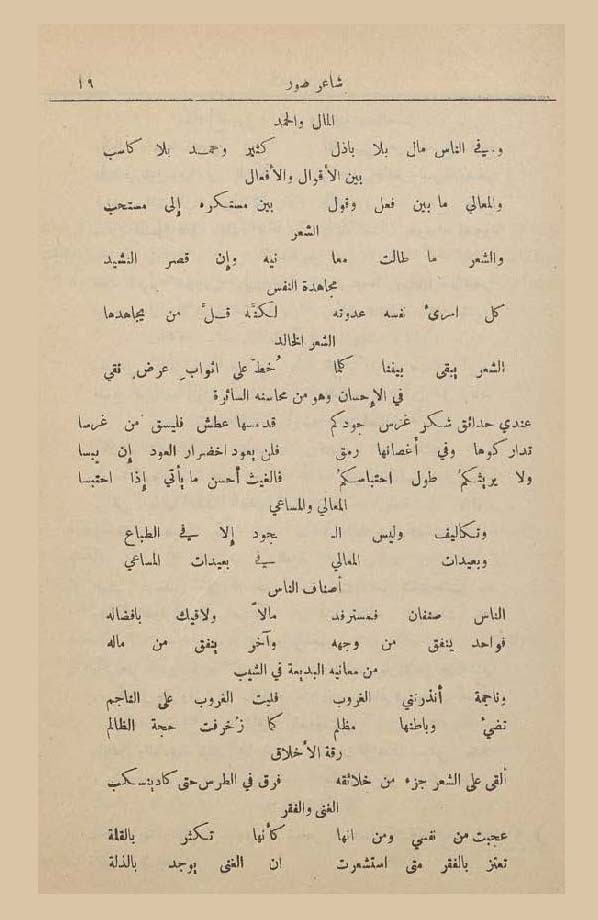 شاعر صور ١٩
المال والحمد
وفي الناس مال بلا باذل كثير وحمد بلا كاسب
بين الأقوال والأفعال
والمعالي ما بين فعل وقول بين مستكره إلى مستحب
الشعر
والشعر ما طالت معا نيه وإن قصر النشيد
مجاهدة النفس
كل امرئ نفسه عدوته لكنه قل من يجاهدها
الشعر الخالد
الشعر يبقى بيننا كلما خط على اثواب عرض نقي
في الإحسان وهو من محاسنه السائرة
عندي حدائق شكر غرس جودكم قد مسها عطش فليسق من غرسا
تداركوها وفي أغصانها رمق فلن يعود اخضرار العود إن يبسا
ولا يريثكم طول احتباسكم فالغيث أحسن ما يأتي إذا احتبسا
المعالي والمساعي
وتكاليف وليس الـ ـجود إلا في الطباع
وبعيدات المعالي في بعيدات المساعي
أصناف الناس
الناس صنفان فمسترفد مالاً ولاقيك بافضاله
فواحد ينفق من وجهه وآخر ينفق من ماله
من معانيه البديعة في الشيب
وناجمة أنذرتني الغروب فليت الغروب على الناجم
تضيء وباطنها مظلم كما زخرفت حجة الظالم
رقة الأخلاق
ألقى على الشعر جزء من خلائقه فرق في الطرس حتى كاد ينسكب
الغنى والفقر
عجبت من نفسي ومن انها كأنها تكثر بالقلة
تعتز بالفقر متى استشعرت ان الغنى يوجد بالذلة